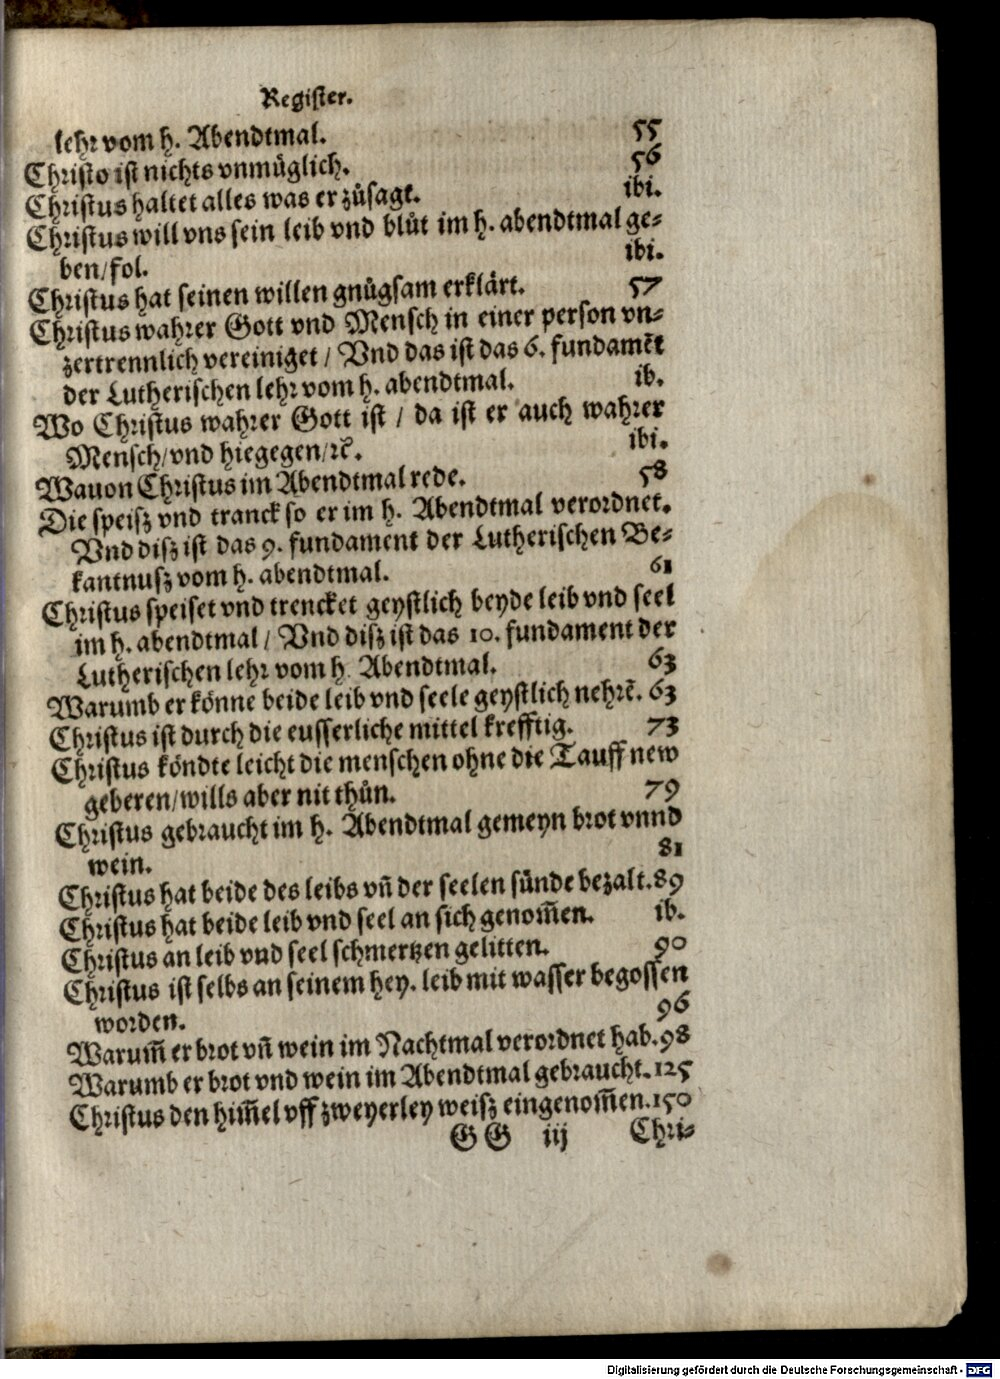 Register.
lehr vom h. Abendtmal. 55
Christo ist nichts vnmüglich. 56
Christus haltet alles was er zůsagt. ibi.
Christus will vns sein leib vnd blůt im h. abendtmal ge-
ben/fol. ibi.
Christus hat seinen willen gnůgsam erklärt. 57
Christus wahrer Gott vnd Mensch in einer person vn-
zertrennlich vereiniget / Vnd das ist das 6. fundamēt
der Lutherischen lehr vom h. abendtmal. ib.
Wo Christus wahrer Gott ist / da ist er auch wahrer
Mensch/vnd hiegegen/ꝛc. ibi.
Wauon Christus im Abendtmal rede. 58
Die speisz vnd tranck so er im h. Abendtmal verordnet.
Vnd disz ist das 9. fundament der Lutherischen Be-
kantnusz vom h. abendtmal. 61
Christus speiset vnd trencket geystlich beyde leib vnd seel
im h. abendtmal / Vnd disz ist das 10. fundament der
Lutherischen lehr vom h. Abendtmal. 63
Warumb er könne beide leib vnd seele geystlich nehrē. 63
Christus ist durch die eusserliche mittel krefftig. 73
Christus köndte leicht die menschen ohne die Tauff new
geberen/wills aber nit thůn. 79
Christus gebraucht im h. Abendtmal gemeyn brot vnnd
wein. 81
Christus hat beide des leibs vñ der seelen sünde bezalt. 89
Christus hat beide leib vnd seel an sich genom̄en. ib.
Christus an leib vnd seel schmertzen gelitten. 90
Christus ist selbs an seinem hey. leib mit wasser begossen
worden. 96
Warum̄ er brot vñ wein im Nachtmal verordnet hab. 98
Warumb er brot vnd wein im Abendtmal gebraucht. 125
Christus den him̄el vff zweyerley weisz eingenom̄en. 150
GG iij Chri-
Digitalisierung gefördert durch die Deutsche Forschungsgemeinschaft - DFG